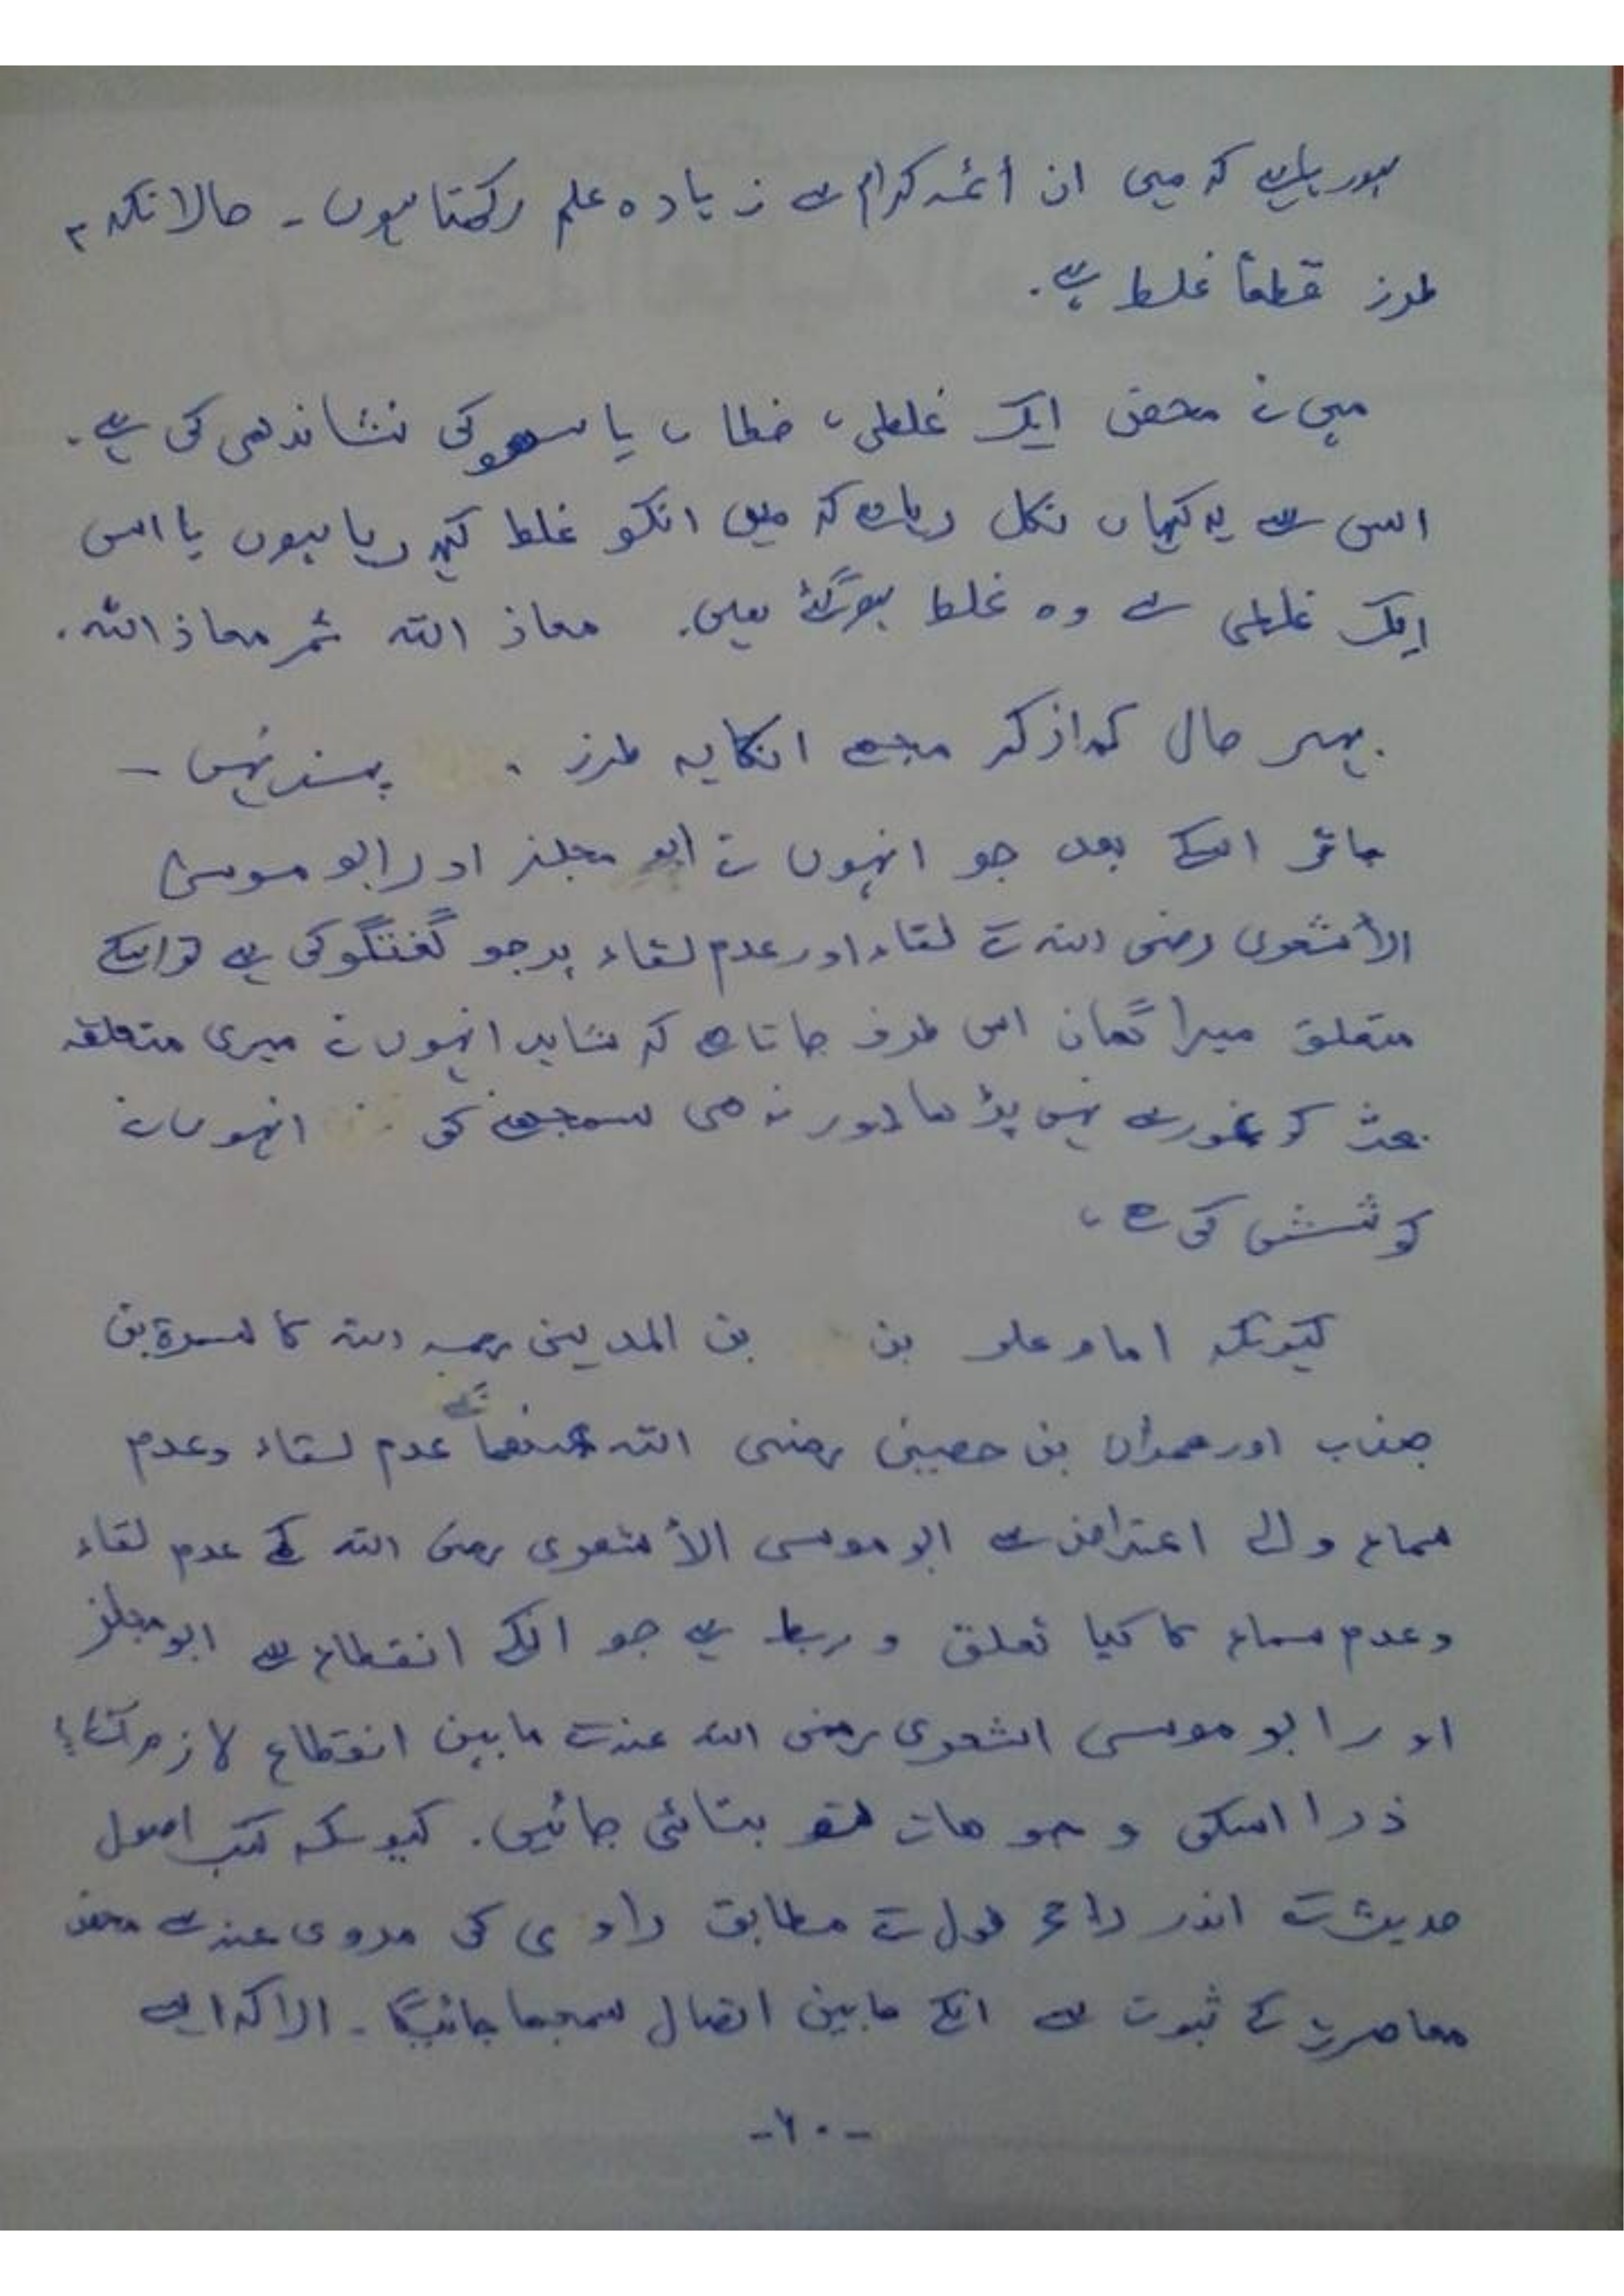 ہورہا ہے کہ میں ان أئمہ کرام سے زیادہ علم رکھتا ہوں - حالانکہ
طرز قطعاً غلط ہے۔
میں نے محض ایک غلطی، خطا، یا سھو کی نشاندھی کی ہے۔
اس سے یہ کہاں نکل رہا ہے کہ میں انکو غلط کہہ رہا ہوں یا اس
ایک غلطی سے وہ غلط ہوگئے ہیں۔ معاذ اللہ ثمر معاذ اللہ۔
بہر حال کم از کم مجھے انکا یہ طرز پسند نہیں -
اسکے بعد جو انہوں نے ابو مجلز اور ابو موسیٰ
الأشعری رضی اللہ کے لقاء اور عدم لقاء پر جو گفتگو کی ہے تو اسکے
متعلق میرا گمان اس طرف جاتا ہے کہ شاید انہوں نے میری متعلقہ
بحث کو غور سے نہیں پڑھا اور نہ ھی سمجھنے کی انہوں نے
کوشش کی ہے،
کیونکہ امام علی بن بن المدینی رحمہ اللہ کا سمرۃ بن
جندب اور عمران بن حصین رضی اللہ عنھما کے عدم لقاء وعدم
سماع والے اعتراض سے ابو موسی الأشعری رضی اللہ کے عدم لقاء
وعدم سماع کا کیا تعلق و ربط ہے جو انکے انقطاع سے ابو مجلز
اور ابو موسی اشعری رضی اللہ عنہ کے مابین انقطاع لازم آئے؟
ذرا اسکی وجوھات تو بتائی جائیں۔ کیونکہ کتب اصول
حدیث کے اندر راجح قول کے مطابق راوی کی مروی عنہ سے محض
معاصرت کے ثبوت سے انکے مابین اتصال سمجھا جائیگا - الا کہ ایسے
-۶۰-